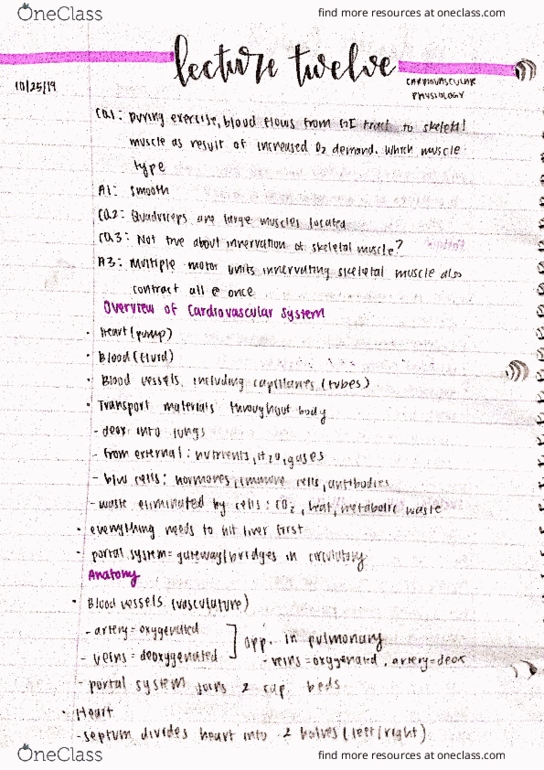 OneClass
find more resources at oneclass.com
lecture twelve
10/25/19
CARDIOVASCULAR
PHYSIOLOGY
Q1: During exercise, blood flows from GI tract to skeletal
muscle as result of increased O2 demand. Which muscle
type
A1: Smooth
Q2: Quadriceps are large muscles located
Q3: Not true about innervation of skeletal muscle?
A3: Multiple motor units innervating skeletal muscle also
contract all @ once
Overview of Cardiovascular System
· Heart (pump)
· Blood (fluid)
· Blood vessels, including capillaries (tubes)
· Transport materials throughout body
- deox. into lungs
- from external: nutrients, H2O, gases
- btw cells: hormones, immune cells, antibodies
- waste eliminated by cells: CO2, heat, metabolic waste
· everything needs to hit liver first
· portal system = gateway/bridges in circulatory
Anatomy
· Blood vessels (vasculature)
- artery = oxygenated
- veins = deoxygenated
] opp. in pulmonary
- veins = oxygenated, artery = deox
- portal system joins 2 cap. beds
· Heart
- septum divides heart into 2 halves (left/right)
OneClass
find more resources at oneclass.com